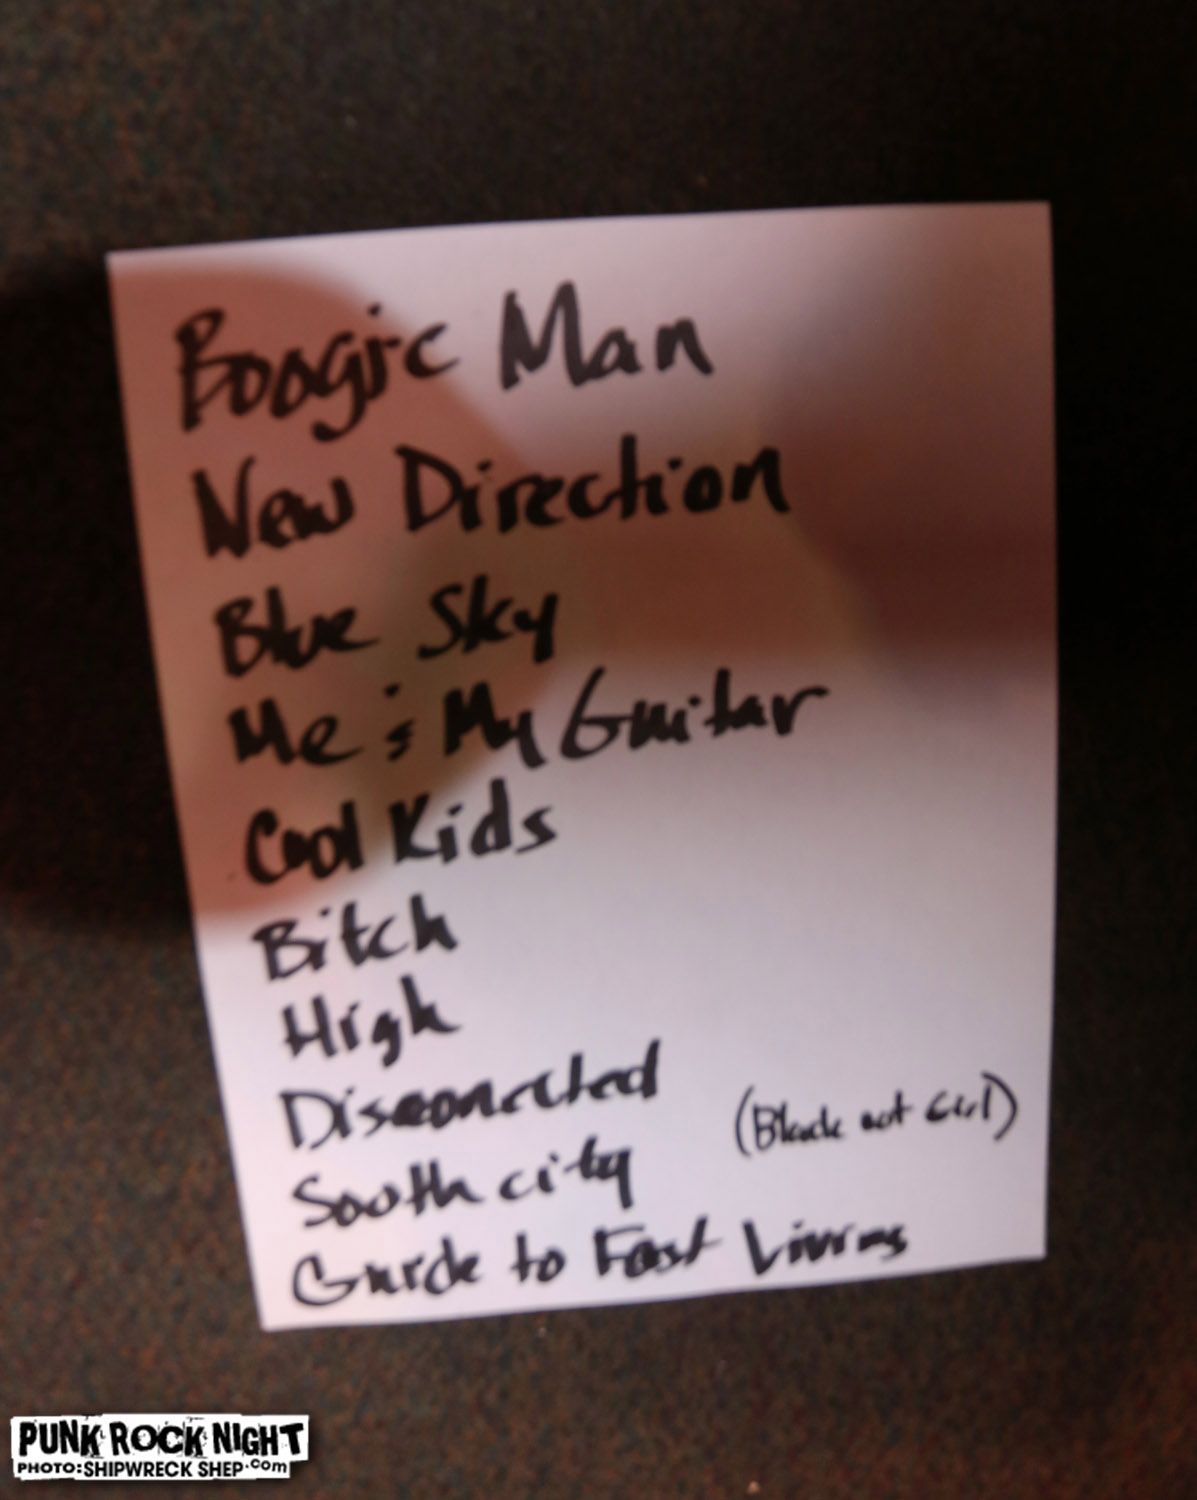 Boogie Man
New Direction
Blue Sky
Me & My Guitar
Cool Kids
Bitch
High
Disconected
(Black out Girl)
South city
Guide to Fast Living
PUNK ROCK NIGHT
PHOTO: SHIPWRECK SHEP.com